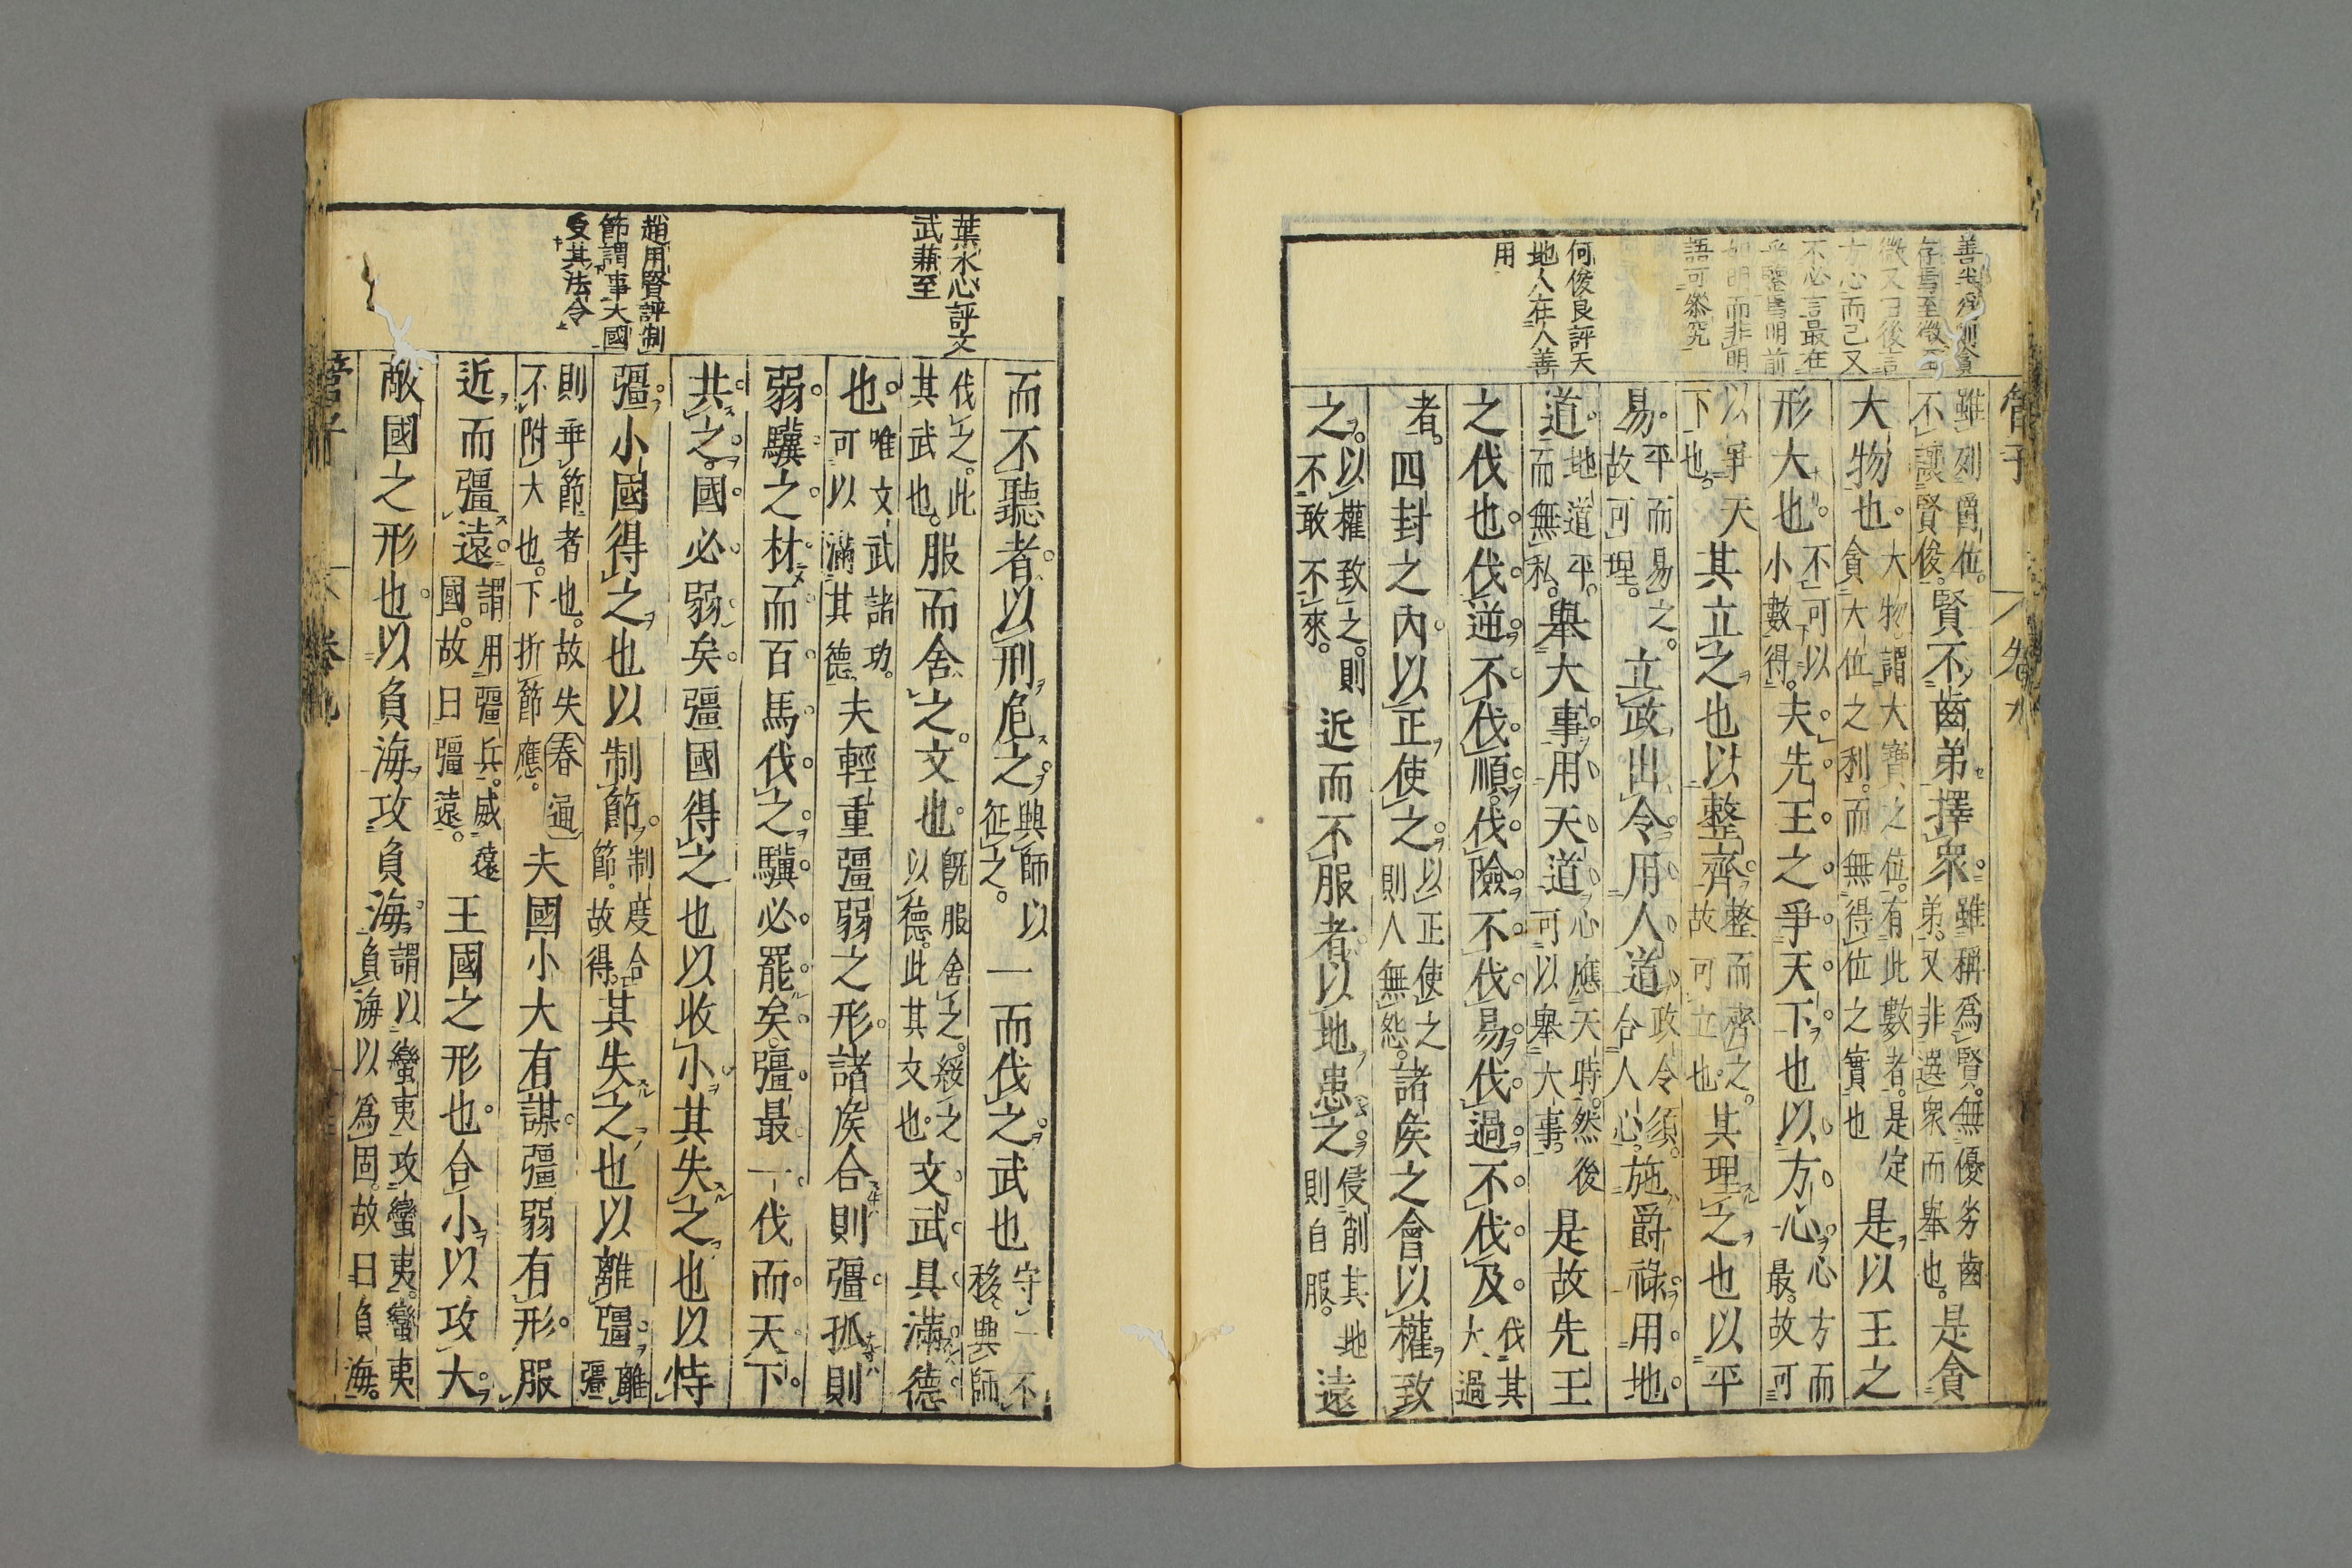 管子
善
方心而已又
不必言最在
乎整焉明前
如明而非明
語可叅究
何俊良評天
地人在人善
用
雖列爵位。不讓賢俊。賢不齒弟擇衆。雖稱爲賢。無優劣齒弟。又非選衆而舉也。是貪
大物也。大物。謂大寶之位。有此數者。是定貪大位之利。而無得位之實也是以王之
形大也。不可以小數得。夫先王之爭天下也以方心。心方而最。故可
以爭天下也。其立之也以整齊。整而齊之。故可立也。其理之也以平
易。平而易之。故可理。立政出令用人道。政令須合人心。施爵祿用地
道。地道平。而無私。舉大事用天道。心應天時。然後可以舉大事。是故先王
之伐也。伐逆不伐順。伐險不伐易。伐過不伐及。伐其太過
者。四封之內以正使之。以正使之則人無怨。諸矦之會以權致
之。以權致之。則不敢不來。近而不服者。以地患之。侵削其地則自服。遠
葉水心評文
武兼至
趙用賢評制
節謂事大國
受其法令
而不聽者。以刑危之。興師以征之。一而伐之。武也守一不移、興師
伐之。此其武也。服而舍之。文也。旣服舍之。綏之以德。此其文也。文武具滿德
也。唯文武諸功。可以滿其德夫輕重彊弱之形。諸矦合則彊。孤則
弱。驥之材。而百馬伐之。驥必罷矣。彊最一伐。而天下
共之。國必弱矣。彊國得之也以收小。其失之也以恃
彊。小國得之也以制節。制度合節。故得。其失之也以離彊。離彊
則乖節者也。故失不附大也。下折節應。春通夫國小大有謀。彊弱有形。服
近而彊遠。謂用彊兵。威遠國。故曰彊遠。王國之形也。合小以攻大。
敵國之形也。以負海攻負海。謂以蠻夷攻蠻夷。蠻夷負海以爲固。故曰負海。
管子
卷九